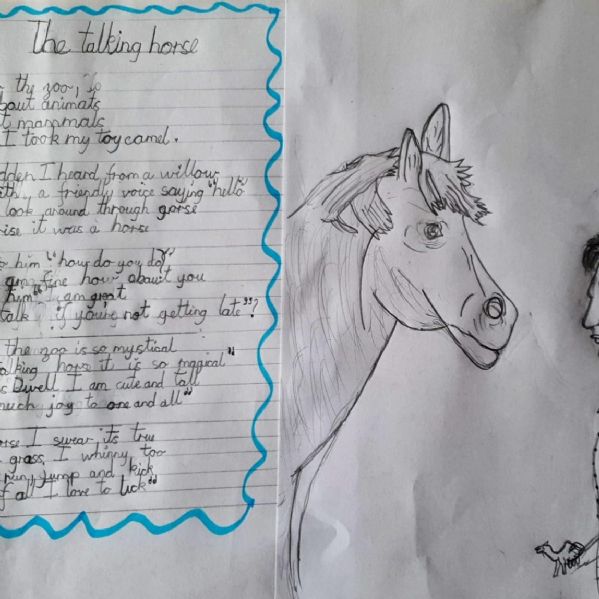 The talking horse
the zoo, so
bout animals
t mammals
I took my toy camel.
dden I heard, from a willow
ith a friendly voice saying "hello"
look around through gorse
rise it was a horse
him "how do you do?"
am fine how about you
him "I am great
talk if you're not getting late"?
the zoo is so mystical
alking horse it is so magical"
s Duvell I am cute and tall
much joy to one and all"
rse I swear its true
grass, I whinny too
run, jump and kick
f all I love to lick"